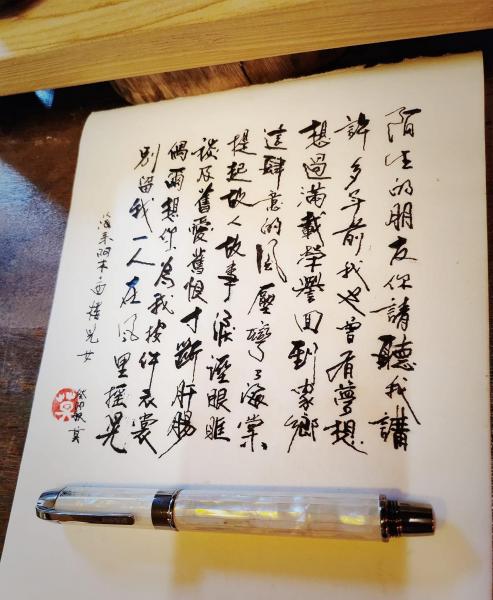 陌生的朋友你請聽我講
許多年前我也曾有夢想
想過滿載榮譽回到家鄉
這肆意的風壓彎了海棠
提起故人故事淚溼眼眶
談及舊愛舊恨寸斷肝腸
偶爾想你為我披件衣裳
別留我一人在風里搖晃
海来阿木西樓兒女